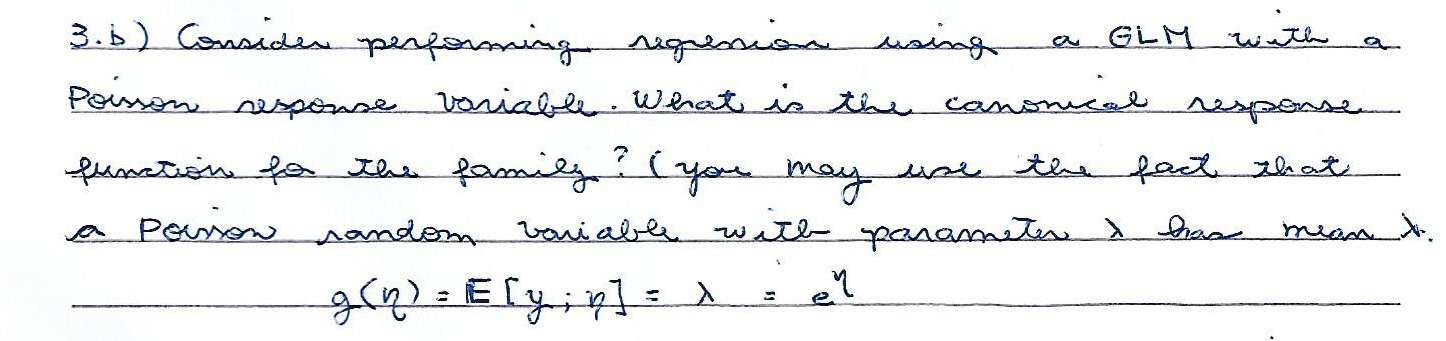 3.b) Consider performing regression using a GLM with a
Poisson response variable. What is the canonical response
function fo the family? (you may use the fact that
a Poisson random variable with parameter λ has mean λ.
g(η) = E[y; η] = λ = e^η